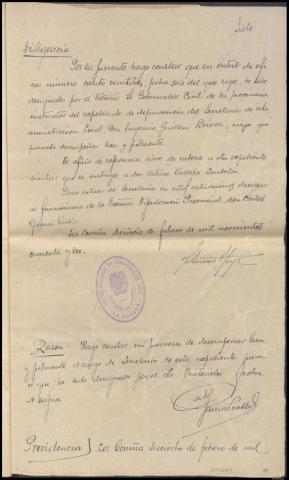 siete
Diligencia
Por la presente hago constar que en virtud de ofi
cio número ciento veintidós, fecha seis del que rige, he sido
designado por el Excmo Sr Gobernador Civil de la provincia
instructor del expediente de depuración del Secretario de Ad-
ministración Local Don Eugenio Guillén Borova, cargo que
prometo desempeñar bien y fielmente.
El oficio de referencia sirve de cabeza a otro expediente
similar que se instruye a don Arturo
Para actuar de Secretario en estas actuaciones designo
al funcionario de la Excma Diputación Provincial, don Carlos
La Coruña dieciséis de febrero de mil novecientos
cuarenta y dos.
LA CORUÑA
Razon - Hago constar mi promesa de desempeñar bien
y fielmente el cargo de Secretario de este expediente para
el que he sido designado por el Sr Instructor. Fecha
ut supra
Carlos
Providencia } La Coruña dieciocho de febrero de mil